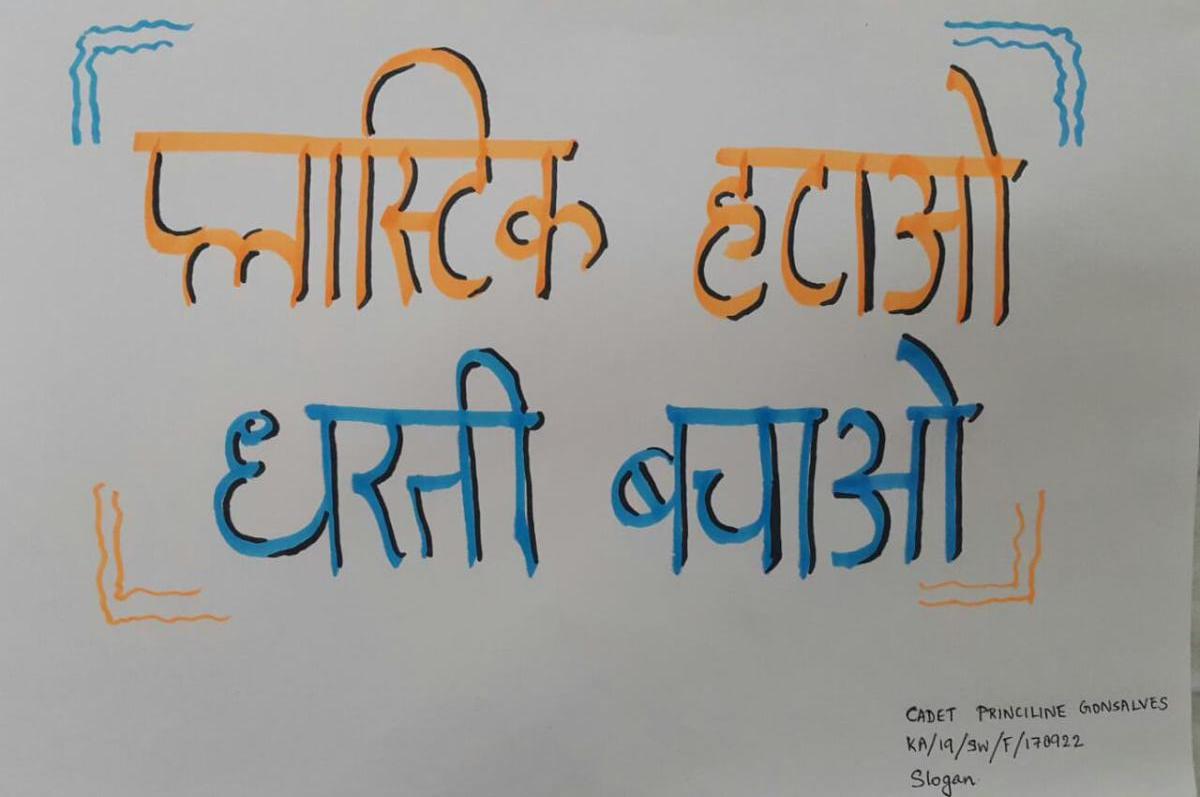 प्लास्टिक हटाओ
धरती बचाओ
CADET PRINCILINE GONSALVES
KA/19/SW/F/170922
Slogan